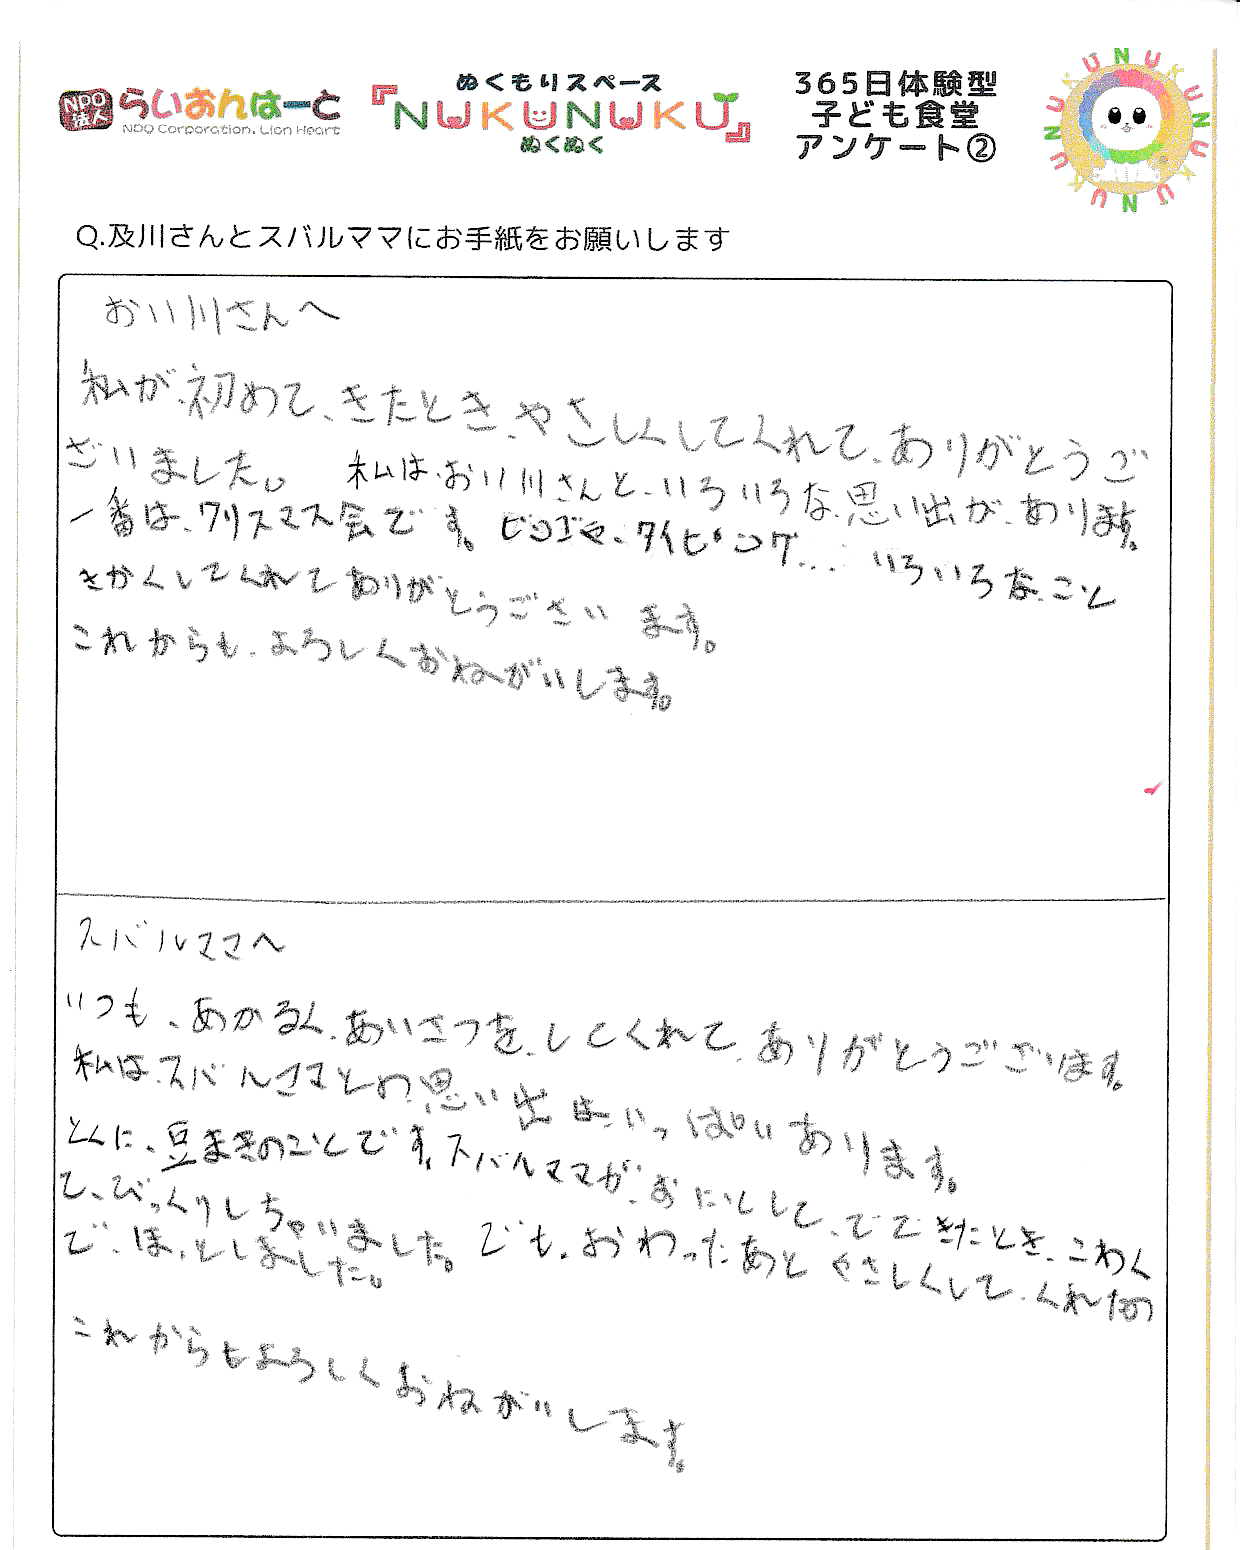 NPO法人 らいおんはーと
NPO Corporation. Lion Heart
ぬくもりスペース
『NUKUNUKU』
ぬくぬく
365日体験型
子ども食堂
アンケート②
NUKUNUKUNUKUNUKU
Q.及川さんとスバルママにお手紙をお願いします
おい川さんへ
私が、初めて、きたとき、やさしくしてくれて、ありがとうご
ざいました。 私は、おい川さんと、いろいろな思い出が、あります。
一番は、クリスマス会です。ビンゴや、タイピング... いろいろな、こと
きかくしてくれてありがとうございます。
これからも、よろしくおねがいします。
スバルママへ
いつも、あかるく、あいさつを、してくれて、ありがとうございます。
私は、スバルママとの思い出は、いっぱいあります。
とくに、豆まきのことです。スバルママが、おにとして、でてきたとき、こわく
て、びっくりしちゃいました。でも、おわったあとやさしくして、くれたの
で、ほっとしました。
これからもよろしくおねがいします。